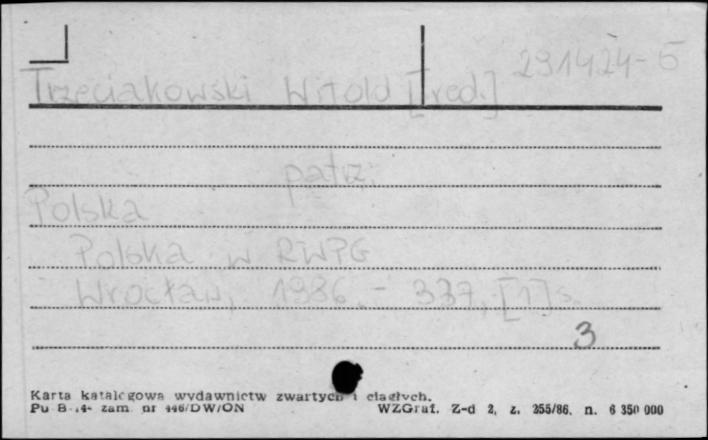 291424-5
Trzeciakowski Witold [red.]
patrz:
Polska
Polska w RWPG
Wrocław, 1986.- 337, [1] s.
3
Karta katalogowa wydawnictw zwartych i ciągłych.
Pu B-14- zam. nr 446/DW/ON WZGraf. Z-d 2, z. 255/86. n. 6 350 000